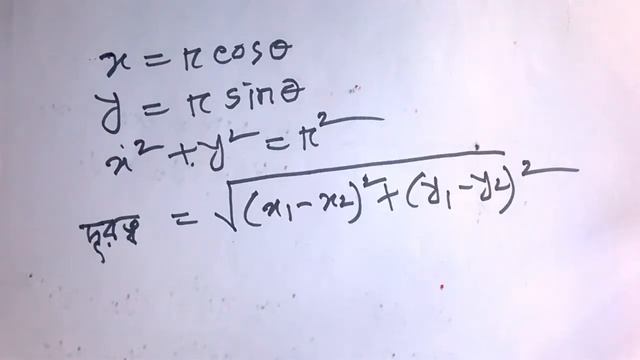 x = r cosθ
y = r sinθ
x² + y² = r²
দূরত্ব = √(x₁ - x₂)² + (y₁ - y₂)²